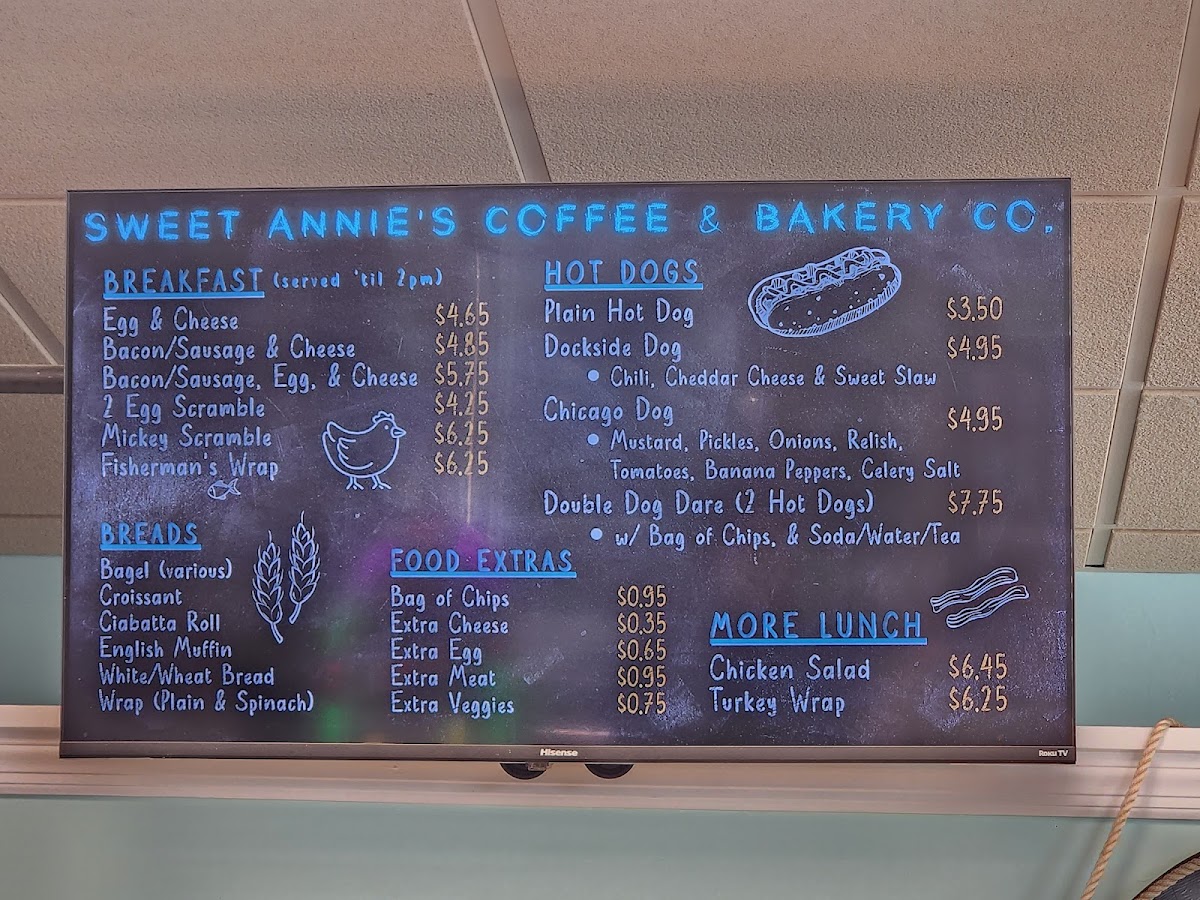 SWEET ANNIE'S COFFEE & BAKERY CO.
BREAKFAST (served 'til 2pm)
Egg & Cheese $4.65
Bacon/Sausage & Cheese $4.85
Bacon/Sausage, Egg, & Cheese $5.75
2 Egg Scramble $4.25
Mickey Scramble $6.25
Fisherman's Wrap $6.25
BREADS
Bagel (various)
Croissant
Ciabatta Roll
English Muffin
White/Wheat Bread
Wrap (Plain & Spinach)
FOOD EXTRAS
Bag of Chips $0.95
Extra Cheese $0.35
Extra Egg $0.65
Extra Meat $0.95
Extra Veggies $0.75
HOT DOGS
Plain Hot Dog $3.50
Dockside Dog $4.95
• Chili, Cheddar Cheese & Sweet Slaw
Chicago Dog $4.95
• Mustard, Pickles, Onions, Relish,
Tomatoes, Banana Peppers, Celery Salt
Double Dog Dare (2 Hot Dogs) $7.75
• w/ Bag of Chips, & Soda/Water/Tea
MORE LUNCH
Chicken Salad $6.45
Turkey Wrap $6.25
Hisense
Roku TV